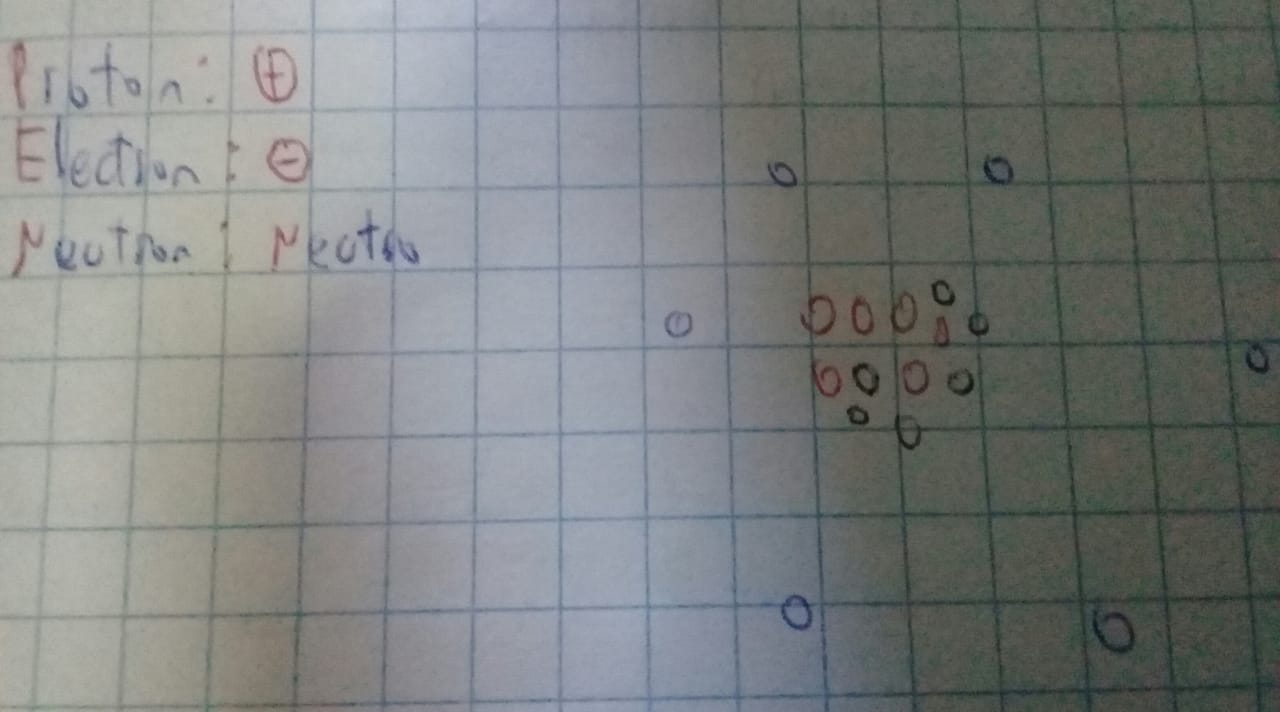 Proton: ⊕
Electron: ⊖
Neutron: Neutro